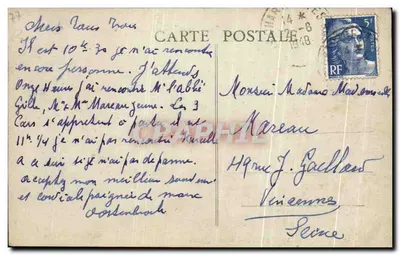 CARTE POSTALE
Il est 10h 30 je n'ai rencontré
encore personne. J'attends
Onze Heures j'ai rencontré Mr l'abbé
Mr & Mme Mareau Jeune. Les 3
Cars s'apprêtent à partir il est
11h 1/4 je n'ai pas rencontré Marcelle
si je n'ai pas de panne.
acceptez mon meilleur souvenir
et cordiale poignée de main
14 *
-8
1948
5F
RF
Monsieur Madame Mademoiselle
Mareau
49 rue J. Gaillard
Vincennes
Seine